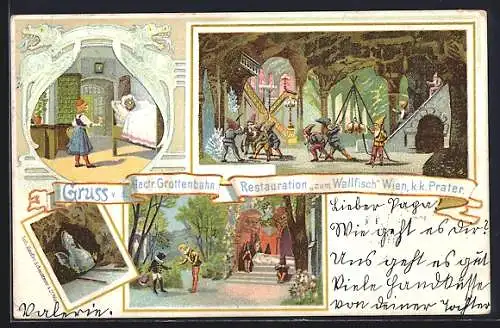 Gruss v. d. Electr. Grottenbahn. Restauration „zum Wallfisch" Wien, k.k. Prater.
Lieber Papa!
Wie geht es dir?
Uns geht es gut
Viele Handküsse
von deiner Tochter
Valerie.